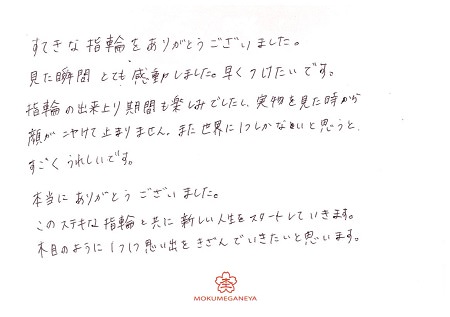 すてきな指輪をありがとうございました。
見た瞬間とても感動しました。早くつけたいです。
指輪の出来上り期間も楽しみでしたし、実物を見た時から
顔がニヤけて止まりません。また世界に1つしかないと思うと、
すごくうれしいです。
本当にありがとうございました。
このステキな指輪と共に新しい人生をスタートしていきます。
木目のように1つ1つ思い出をきざんでいきたいと思います。
MOKUMEGANEYA